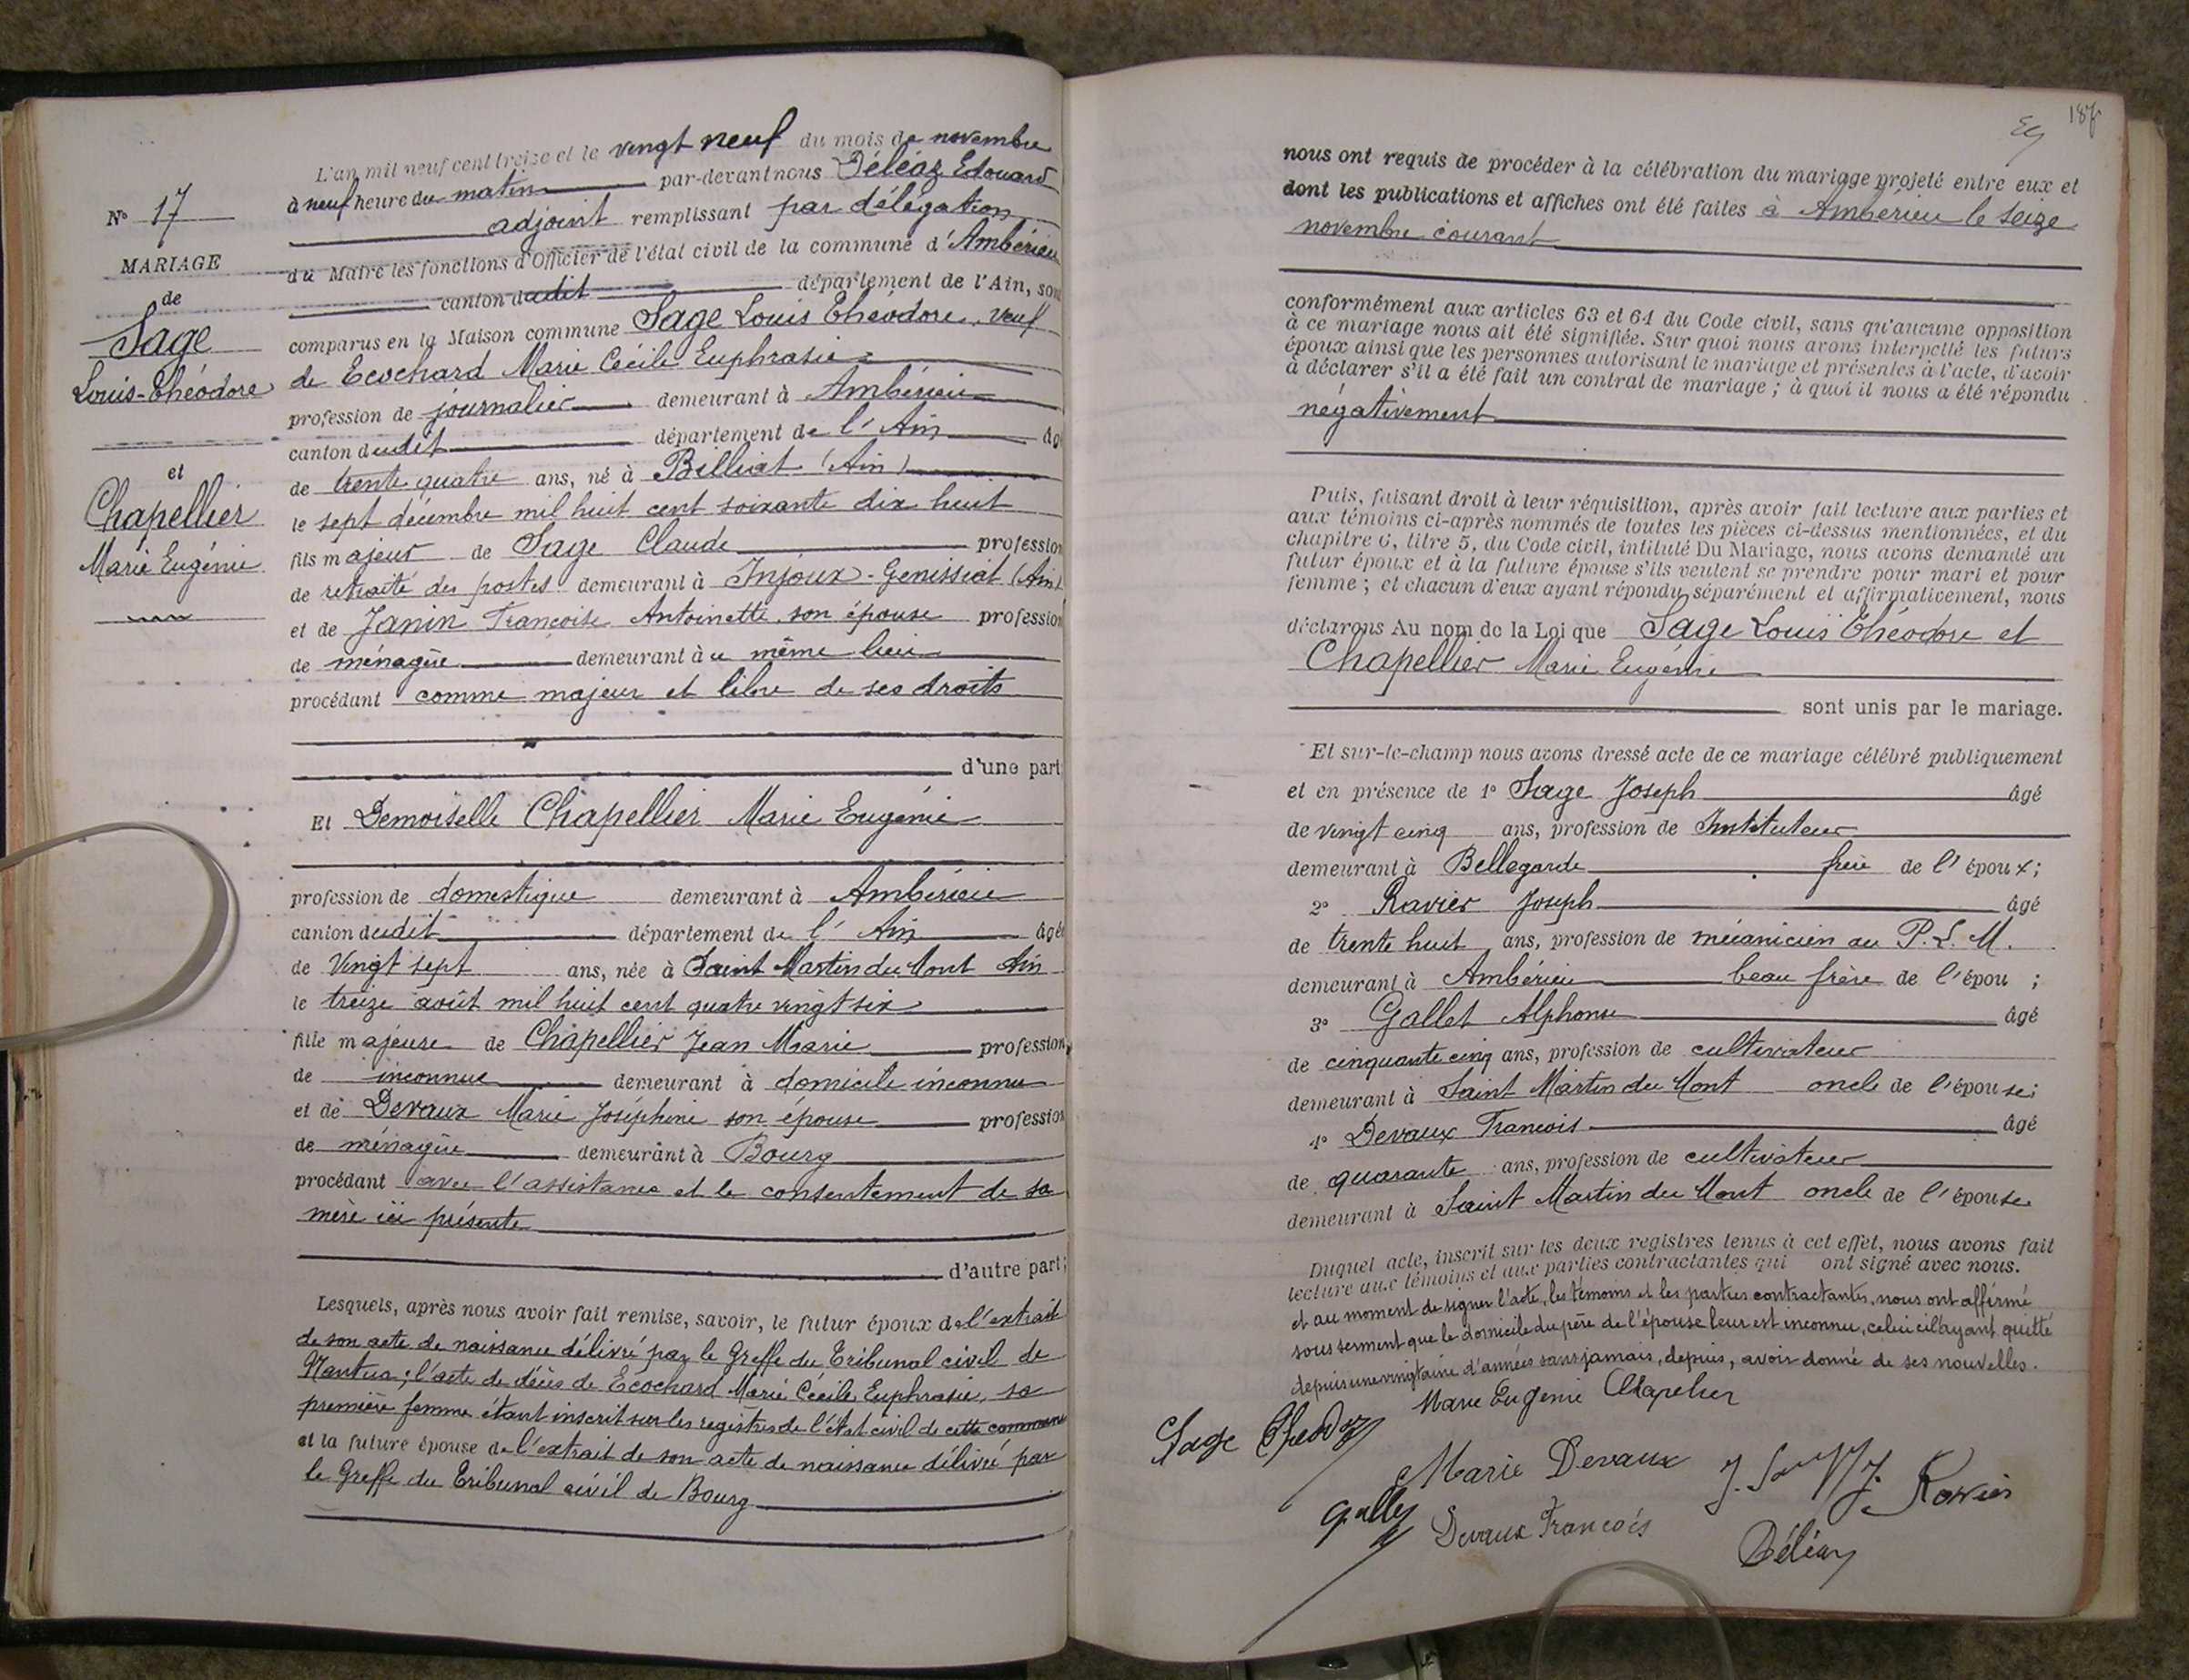 N° 17
MARIAGE
de
Sage
Louis-Théodore
et
Chapellier
Marie Eugénie
L'an mil neuf cent treize et le vingt neuf du mois de novembre
à neuf heure du matin par-devant nous Déléaz Edouard
adjoint remplissant par délégation
du Maire les fonctions d'Officier de l'état civil de la commune d'Ambérieu
canton dudit département de l'Ain, sont
comparus en la Maison commune Sage Louis Théodore, veuf
de Ecochard Marie Cécile Euphrasie
profession de journalier demeurant à Ambérieu
canton dudit département de l'Ain âgé
de trente quatre ans, né à Billiat (Ain)
le sept décembre mil huit cent soixante dix huit
fils majeur de Sage Claude profession
de retraité des postes demeurant à Injoux-Genissiat (Ain)
et de Janin Françoise Antoinette, son épouse profession
de ménagère demeurant au même lieu
procédant comme majeur et libre de ses droits
d'une part
Et Demoiselle Chapellier Marie Eugénie
profession de domestique demeurant à Ambérieu
canton dudit département de l'Ain âgée
de Vingt sept ans, née à Saint Martin du Mont Ain
le treize août mil huit cent quatre vingt six
fille majeure de Chapellier Jean Marie profession
de inconnue demeurant à domicile inconnu
et de Devaux Marie Joséphine son épouse profession
de ménagère demeurant à Bourg
procédant avec l'assistance et le consentement de sa
mère ici présente
d'autre part;
Lesquels, après nous avoir fait remise, savoir, le futur époux de l'extrait
de son acte de naissance délivré par le Greffe du Tribunal civil de
Nantua; l'acte de décès de Ecochard Marie Cécile Euphrasie, sa
première femme étant inscrit sur les registres de l'état civil de cette commune
et la future épouse de l'extrait de son acte de naissance délivré par
le Greffe du Tribunal civil de Bourg
187
nous ont requis de procéder à la célébration du mariage projeté entre eux et
dont les publications et affiches ont été faites à Ambérieu le seize
novembre courant
conformément aux articles 63 et 64 du Code civil, sans qu'aucune opposition
à ce mariage nous ait été signifiée. Sur quoi nous avons interpellé les futurs
époux ainsi que les personnes autorisant le mariage et présentes à l'acte, d'avoir
à déclarer s'il a été fait un contrat de mariage; à quoi il nous a été répondu
négativement
Puis, faisant droit à leur réquisition, après avoir fait lecture aux parties et
aux témoins ci-après nommés de toutes les pièces ci-dessus mentionnées, et du
chapitre 6, titre 5, du Code civil, intitulé Du Mariage, nous avons demandé au
futur époux et à la future épouse s'ils veulent se prendre pour mari et pour
femme; et chacun d'eux ayant répondu séparément et affirmativement, nous
déclarons Au nom de la Loi que Sage Louis Théodore et
Chapellier Marie Eugénie
sont unis par le mariage.
Et sur-le-champ nous avons dressé acte de ce mariage célébré publiquement
et en présence de 1° Sage Joseph âgé
de vingt cinq ans, profession de Instituteur
demeurant à Bellegarde frère de l'époux;
2° Ravier Joseph âgé
de trente huit ans, profession de mécanicien au P.L.M.
demeurant à Ambérieu beau frère de l'épou ;
3° Gallet Alphonse âgé
de cinquante cinq ans, profession de cultivateur
demeurant à Saint Martin du Mont oncle de l'épouse;
4° Devaux François âgé
de quarante ans, profession de cultivateur
demeurant à Saint Martin du Mont oncle de l'épouse
Duquel acte, inscrit sur les deux registres tenus à cet effet, nous avons fait
lecture aux témoins et aux parties contractantes qui ont signé avec nous.
et au moment de signer l'acte, les témoins et les parties contractantes, nous ont affirmé
sous serment que le domicile du père de l'épouse leur est inconnu, celui ci l'ayant quitté
depuis une vingtaine d'années sans jamais, depuis, avoir donné de ses nouvelles.
Marie Eugénie Chapelier
Sage
Marie Devaux
J. Ravier
Devaux François
Déléaz